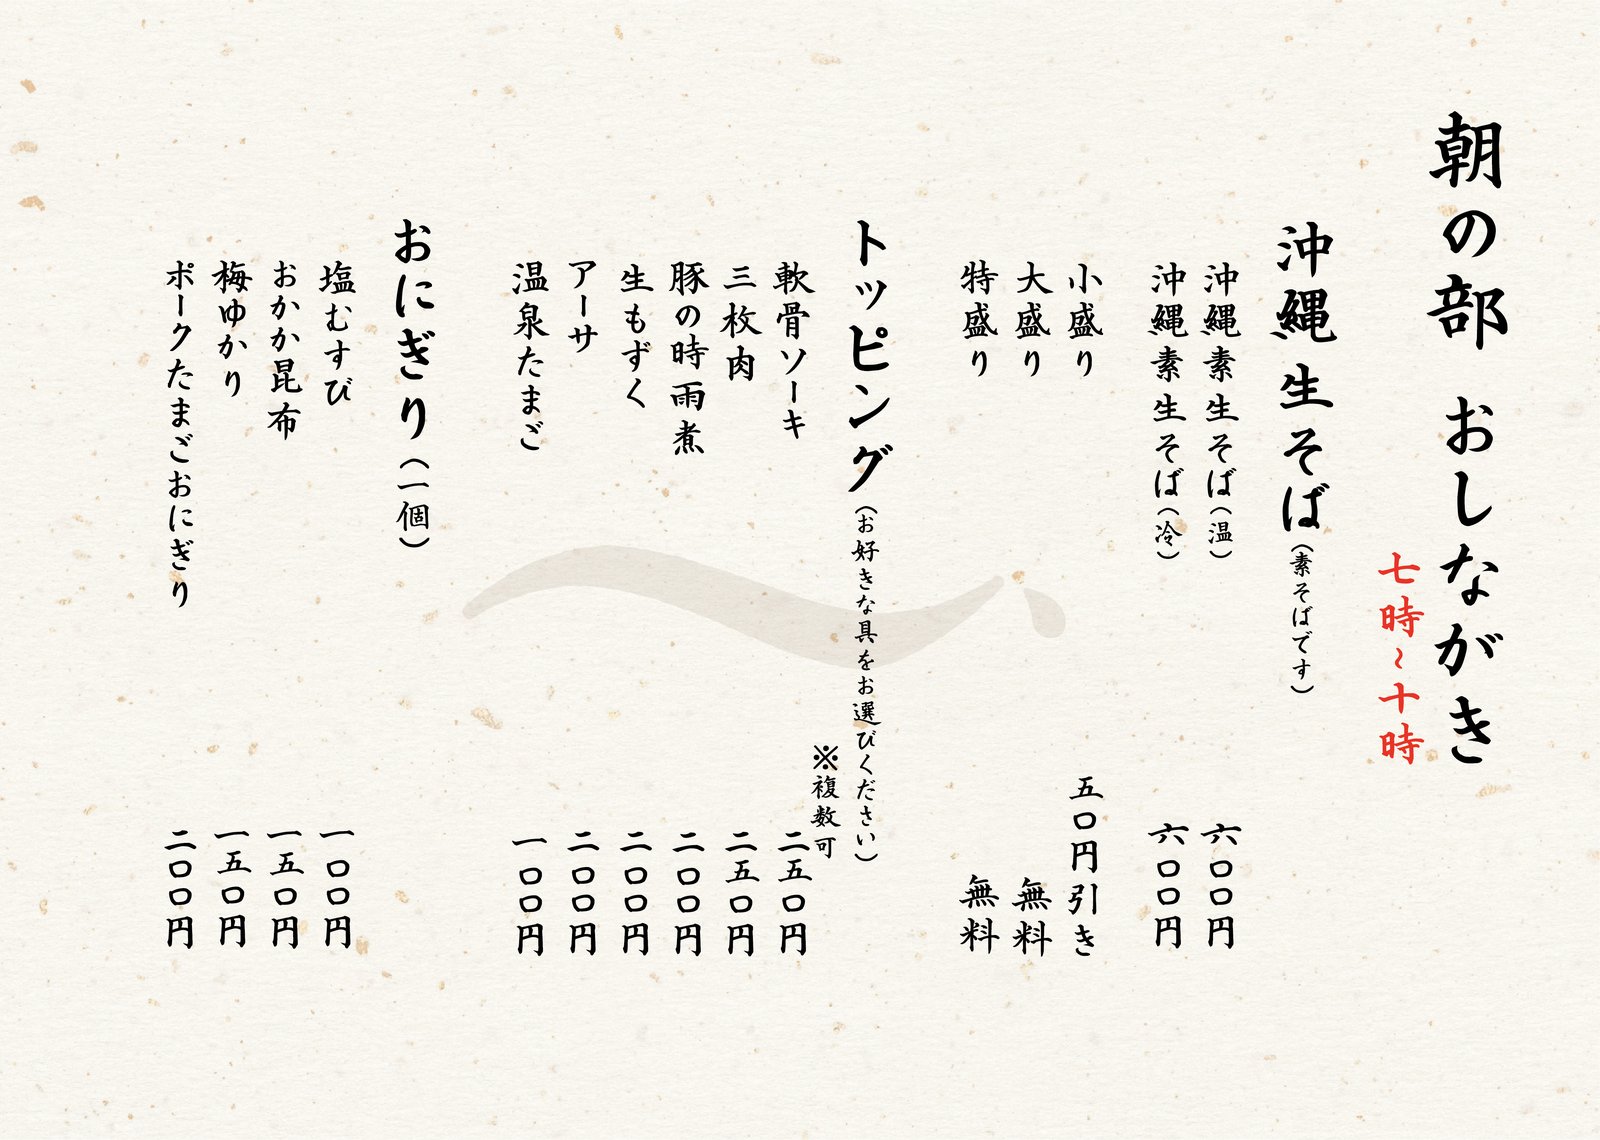 朝の部 おしながき
七時~十時
沖縄生そば(素そばです)
沖縄素生そば(温) 六〇〇円
沖縄素生そば(冷) 六〇〇円
小盛り 五〇円引き
大盛り 無料
特盛り 無料
トッピング(お好きな具をお選びください)
※複数可
軟骨ソーキ 二五〇円
三枚肉 二五〇円
豚の時雨煮 二〇〇円
生もずく 二〇〇円
アーサ 二〇〇円
温泉たまご 一〇〇円
おにぎり(一個)
塩むすび 一〇〇円
おかか昆布 一五〇円
梅ゆかり 一五〇円
ポークたまごおにぎり 二〇〇円